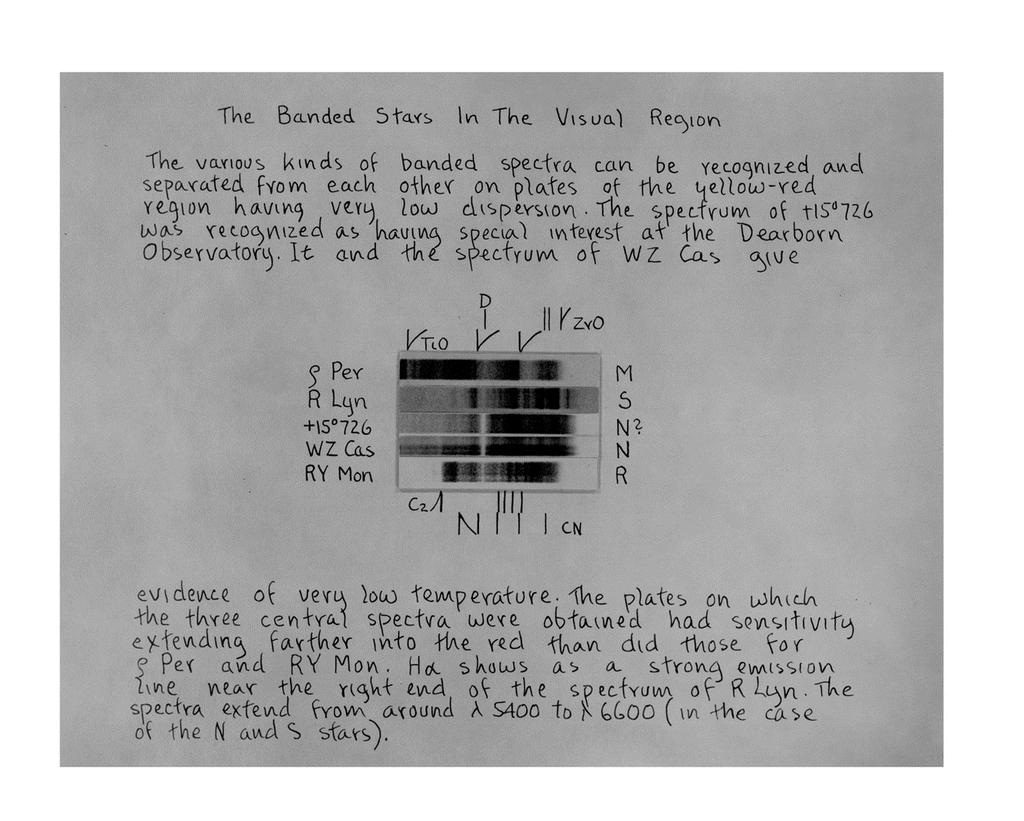 The Banded Stars In The Visual Region
The various kinds of banded spectra can be recognized and
separated from each other on plates of the yellow-red
region having very low dispersion. The spectrum of +15°726
was recognized as having special interest at the Dearborn
Observatory. It and the spectrum of WZ Cas give
D
TiO
ZrO
ρ Per M
R Lyn S
+15°726 N?
WZ Cas N
RY Mon R
C2
N
CN
evidence of very low temperature. The plates on which
the three central spectra were obtained had sensitivity
extending farther into the red than did those for
ρ Per and RY Mon. Hα shows as a strong emission
line near the right end of the spectrum of R Lyn. The
spectra extend from around λ 5400 to λ 6600 (in the case
of the N and S stars).